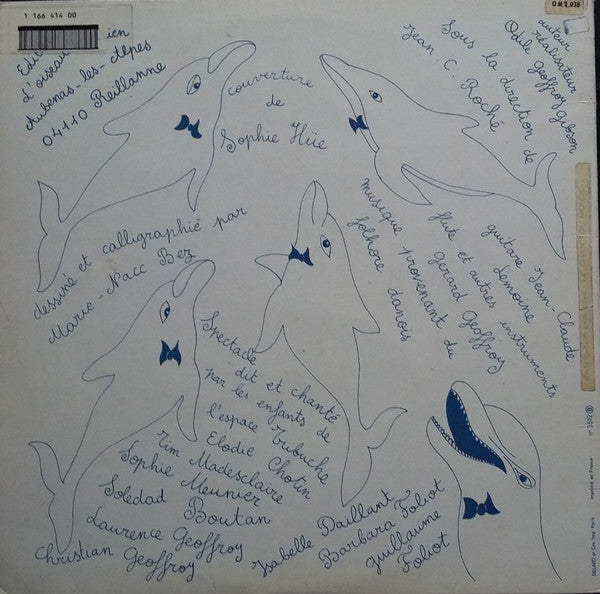 1 166 414 00
OM 2.038
Edit
ien
L'oiseau
Aubenas-les-Alpes
04110 Reillanne
couverture
de
Sophie Hüe
Sous la direction de
Jean C. Roché
auteur
réalisateur
Odile Geoffroy Gibson
dessiné et calligraphié par
Marie-Nacc Bez
guitare Jean-Claude
Lemoine
flute et autres instruments
Gerard Geoffroy
musique provenant du
folhore danois
Spectacle
dit et chanté
par les enfants de
l'espace Trubuche
Elodie Chotin
Tim Madesclaire
Sophie Meunier
Soledad Boutan
Laurence Geoffroy
Christian Geoffroy
Isabelle Daillant
Barbara Foliot
guillaume
Foliot
Imprimé en France